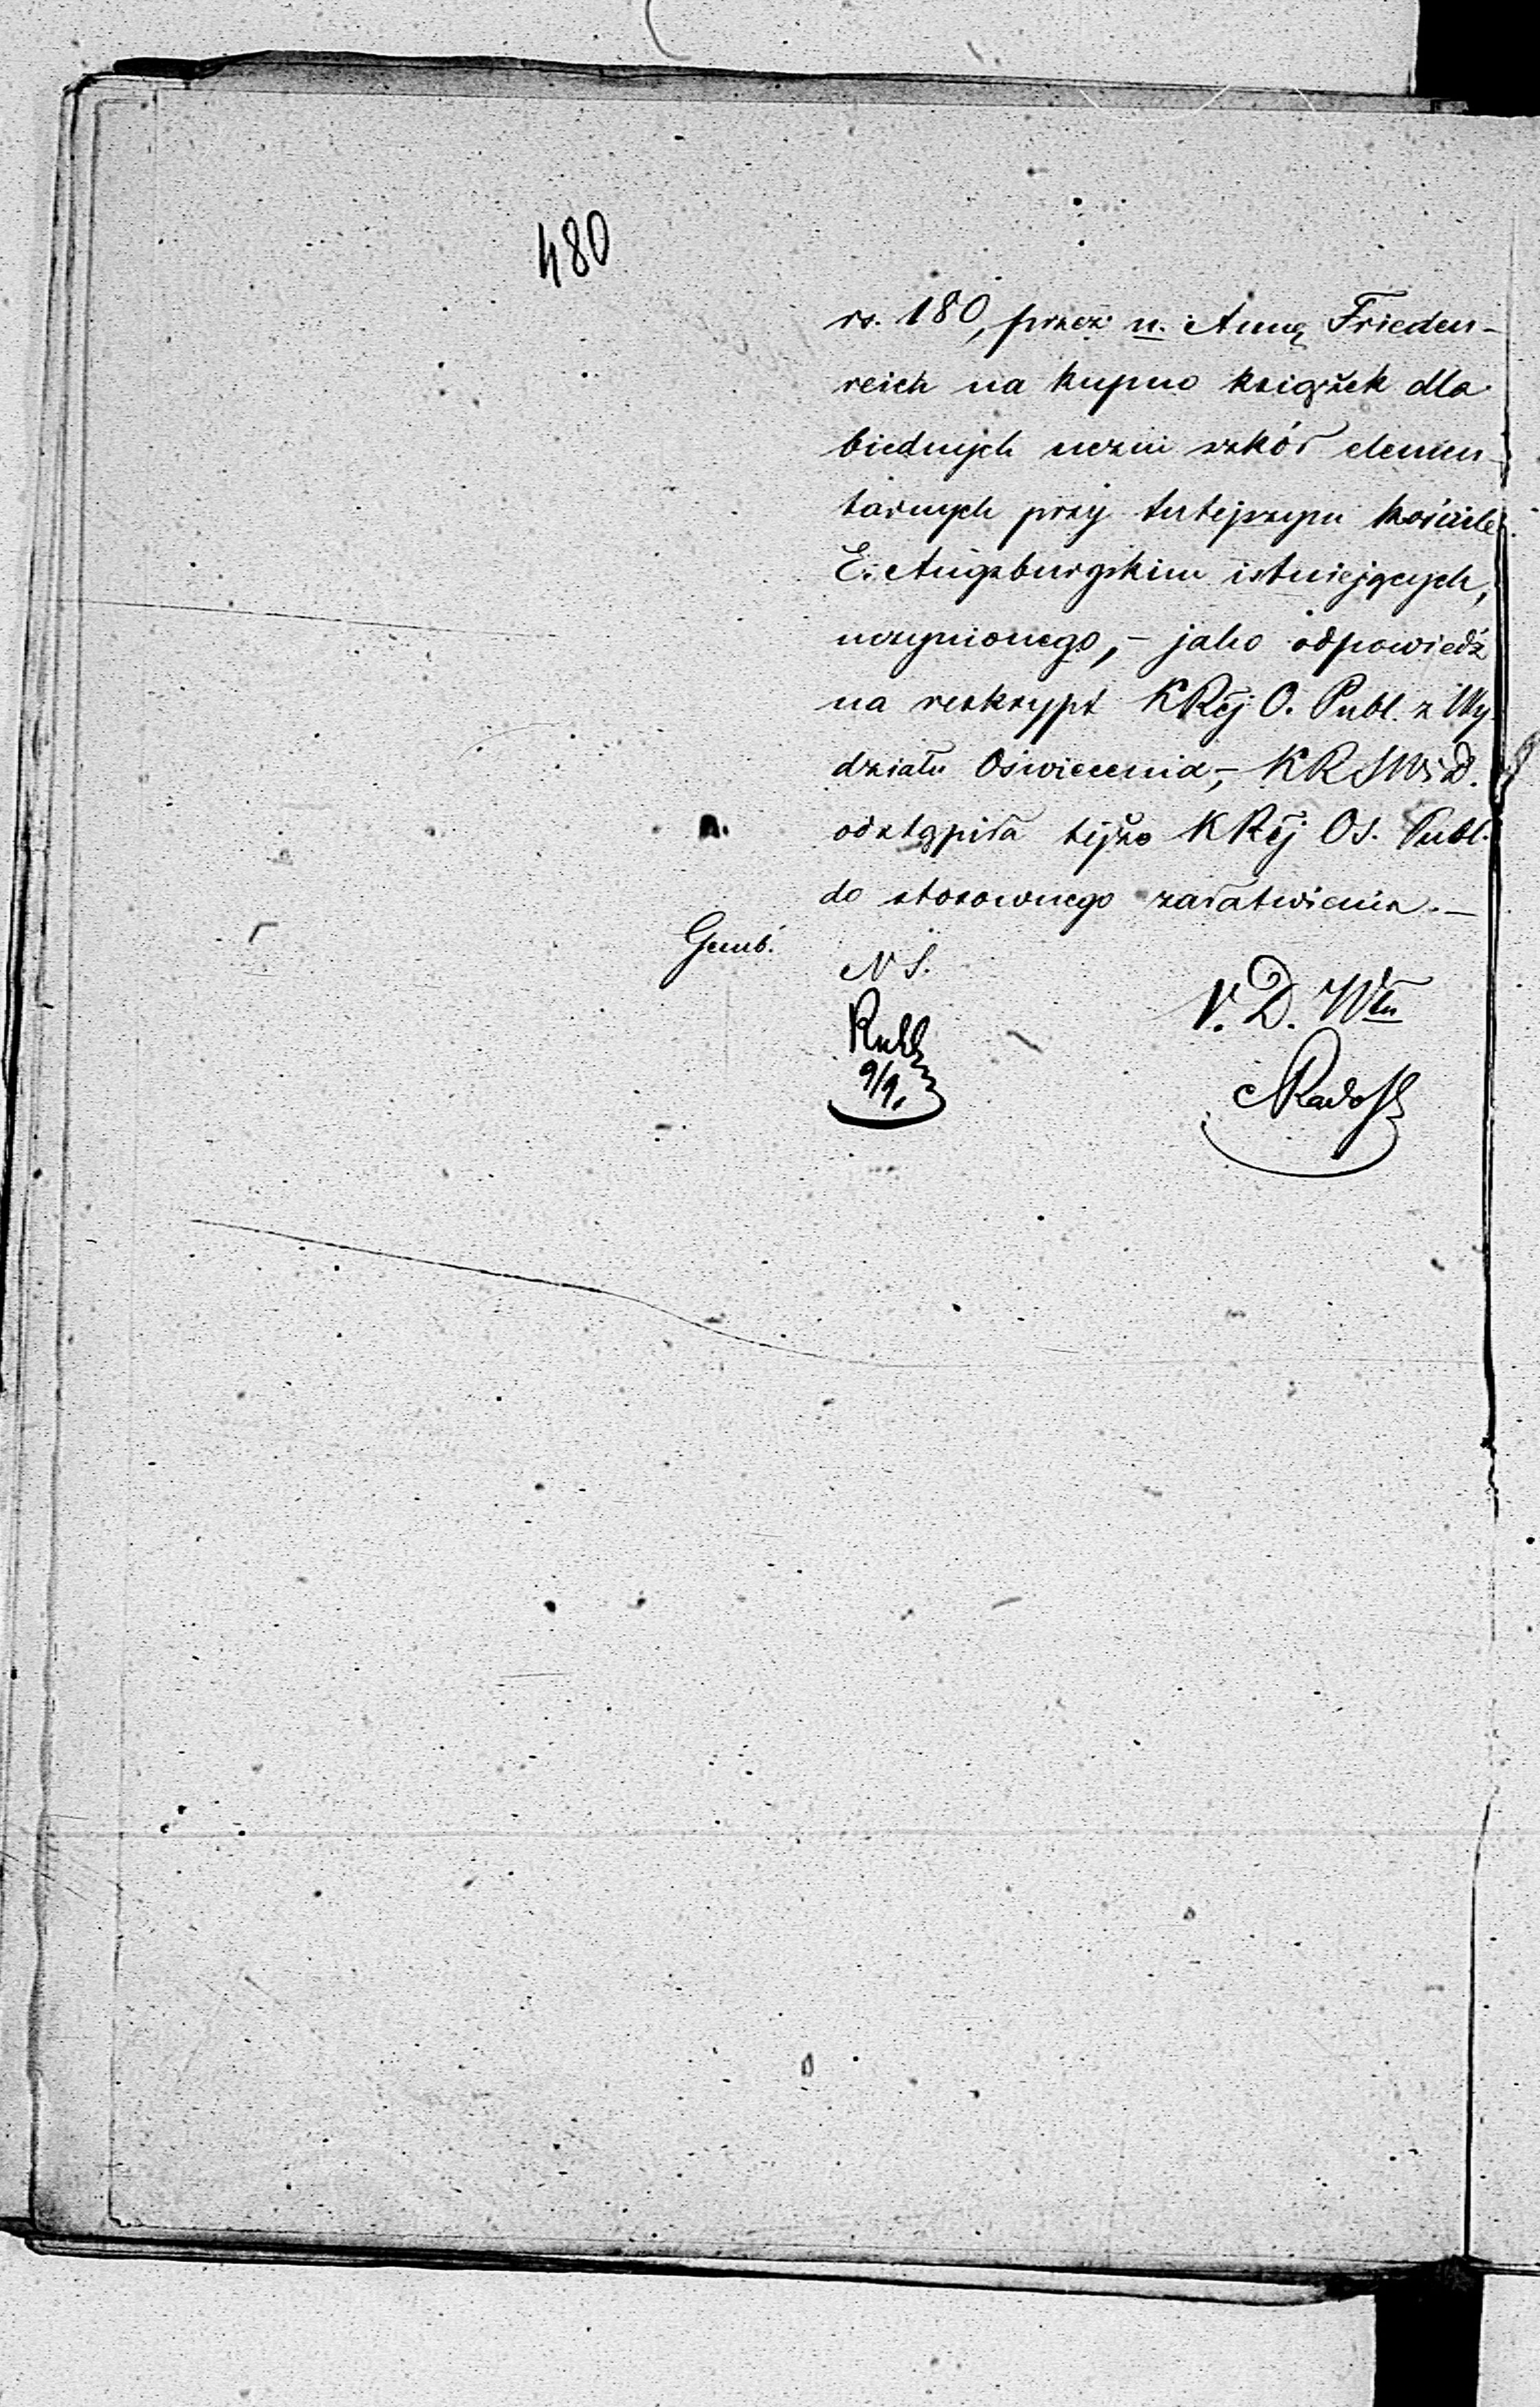 480
rs. 180, przez n. Annę Frieden-
reich na kupno książek dla
biednych uczni szkół elemen-
tarnych przy tutejszym kościele
E. Augsburgskim istniejących,
uczynionego, – jako odpowiedź
na reskrypt KRēj O. Publ. z Wy-
działu Oświecenia, – KRSWiD.
odstąpiła tejże KRēj Oś. Publ.
do stosownego załatwienia. –
Gemb.
NS.
V. D. Włu
9/9.